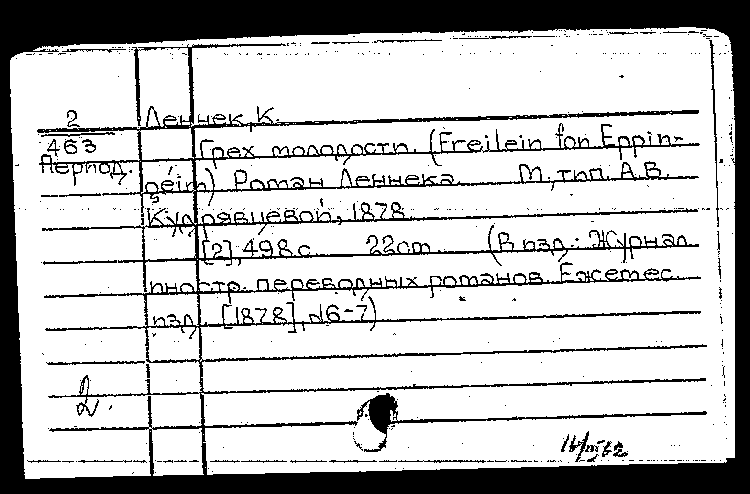 2
463
Период.
Леннек, К.
Грех молодости. (Freilein fon Eppin-
geim) Роман Леннека М., тип. А.В.
Кудрявцевой, 1878.
[2], 498 с. 22 cm. (В изд.: Журнал
иностр. переводных романов. Ежемес.
изд. [1878], №6-7)
2.